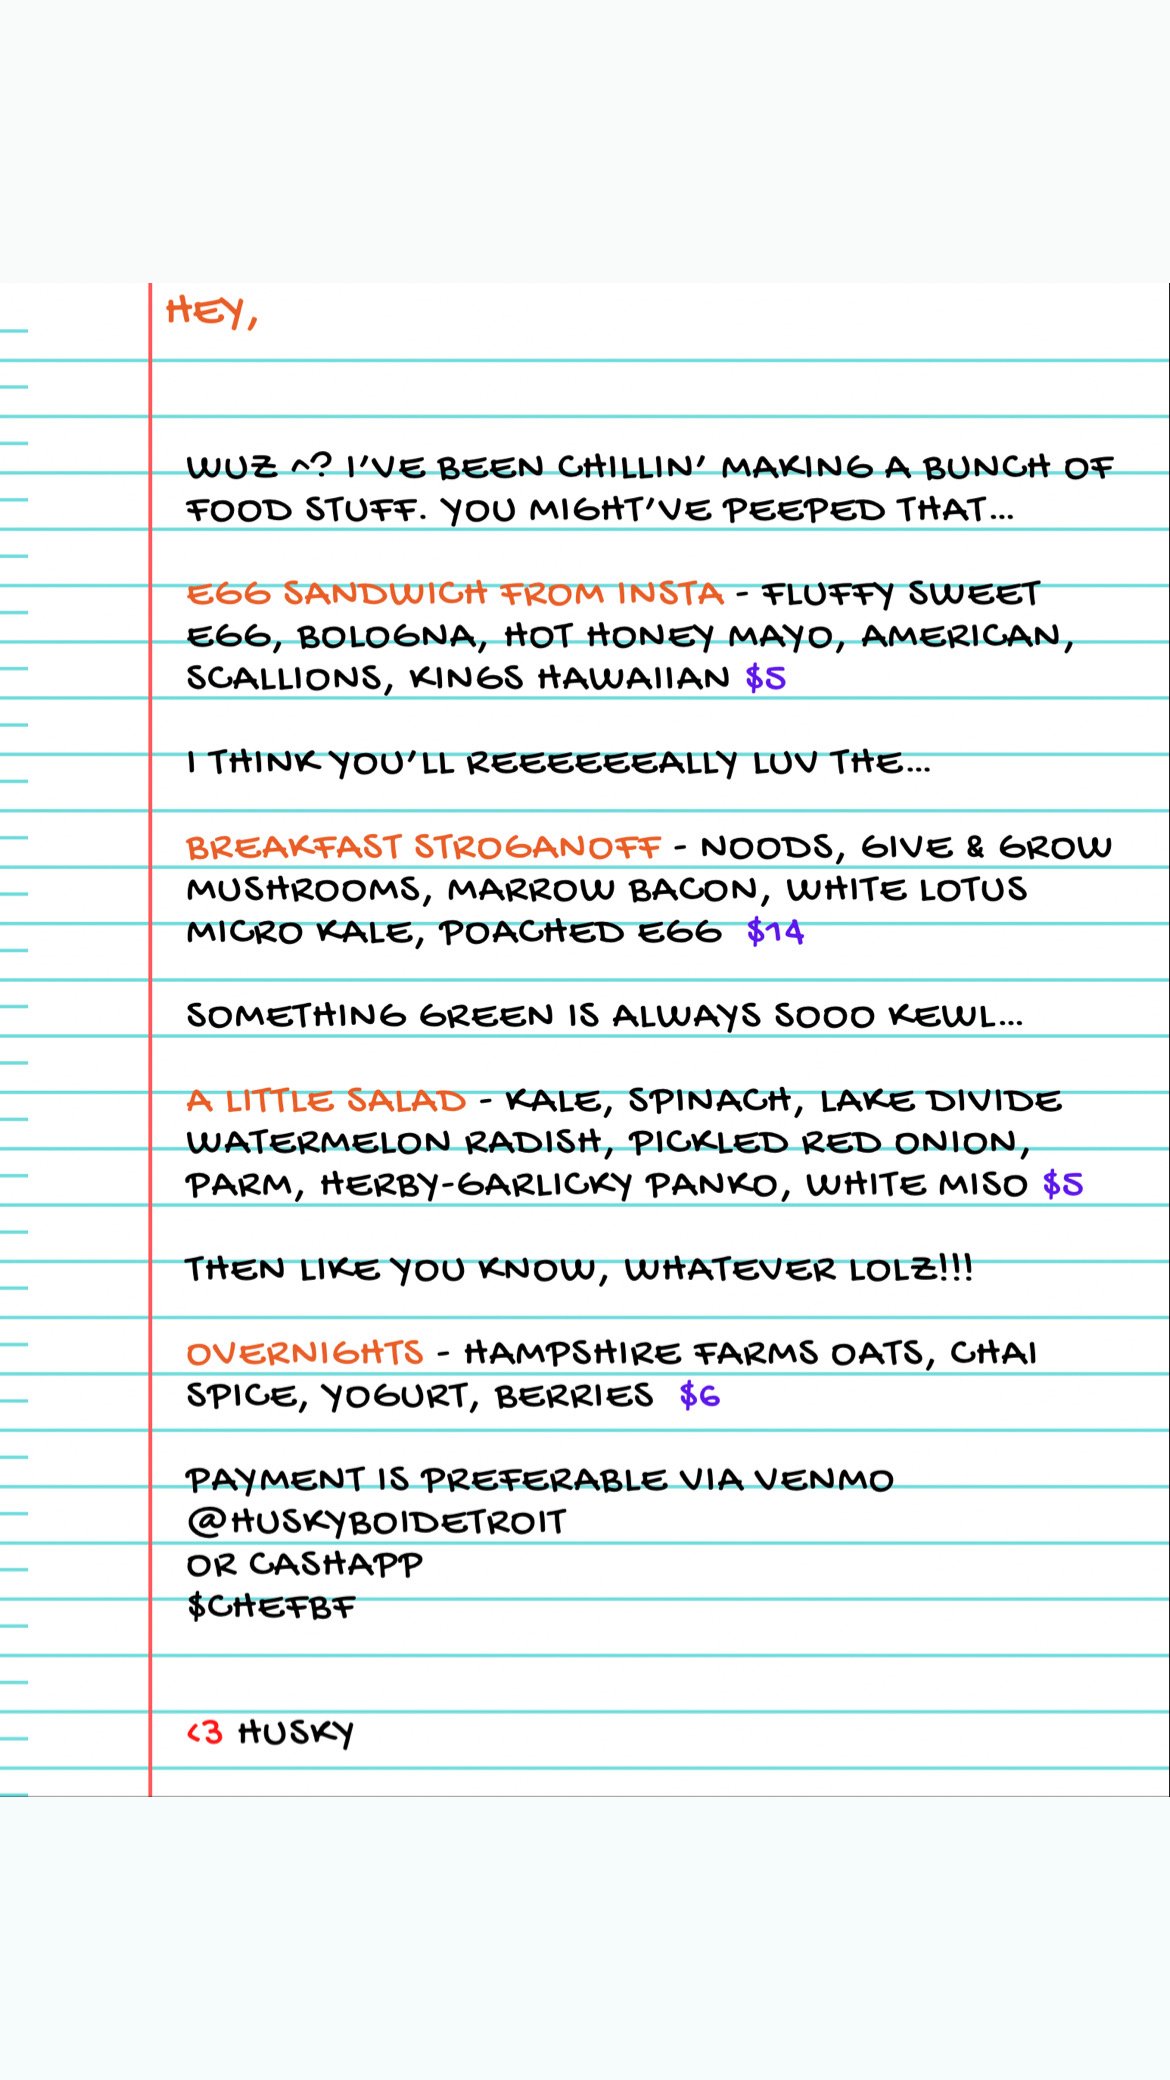 HEY,
WUZ ^? I'VE BEEN CHILLIN' MAKING A BUNCH OF
FOOD STUFF. YOU MIGHT'VE PEEPED THAT...
EGG SANDWICH FROM INSTA - FLUFFY SWEET
EGG, BOLOGNA, HOT HONEY MAYO, AMERICAN,
SCALLIONS, KINGS HAWAIIAN $5
I THINK YOU'LL REEEEEEALLY LUV THE...
BREAKFAST STROGANOFF - NOODS, GIVE & GROW
MUSHROOMS, MARROW BACON, WHITE LOTUS
MICRO KALE, POACHED EGG $14
SOMETHING GREEN IS ALWAYS SOOO KEWL...
A LITTLE SALAD - KALE, SPINACH, LAKE DIVIDE
WATERMELON RADISH, PICKLED RED ONION,
PARM, HERBY-GARLICKY PANKO, WHITE MISO $5
THEN LIKE YOU KNOW, WHATEVER LOLZ!!!
OVERNIGHTS - HAMPSHIRE FARMS OATS, CHAI
SPICE, YOGURT, BERRIES $6
PAYMENT IS PREFERABLE VIA VENMO
@HUSKYBOIDETROIT
OR CASHAPP
$CHEFBF
<3 HUSKY